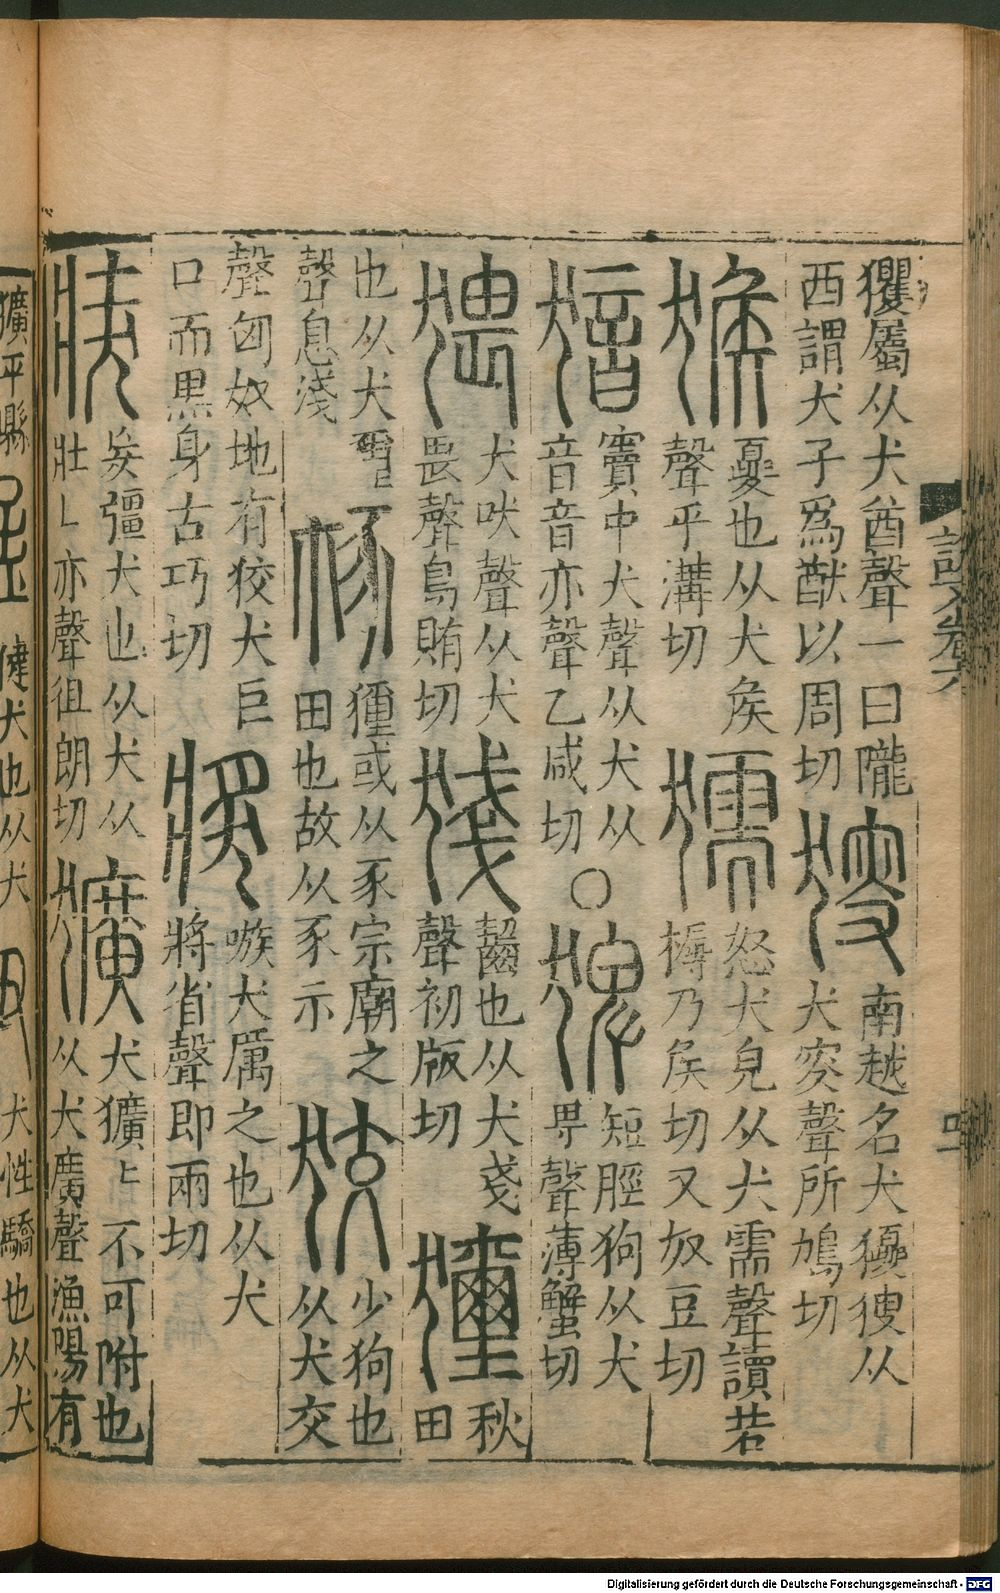 說文卷六
玃屬从犬酋聲一曰隴
西謂犬子爲猷以周切
獀
南越名犬獿獀从
犬叜聲所鳩切
猴
夒也从犬矦
聲乎溝切
獳
怒犬皃从犬需聲讀若
槈乃矦切又奴豆切
猎
竇中犬聲从犬从
音音亦聲乙咸切
○
猈
短脛狗从犬
卑聲薄蟹切
猥
犬吠聲从犬
畏聲烏賄切
㹽
齧也从犬戔
聲初版切
玃
秋
田
也从犬璽
聲息淺
㺍
獮或从豕宗廟之
田也故从豕示
狡
少狗也
从犬交
聲匈奴地有狡犬巨
口而黑身古巧切
獎
嗾犬厲之也从犬
將省聲即兩切
奘
妄彊犬也从犬从
壯〻亦聲徂朗切
獷
犬獷〻不可附也
从犬廣聲漁陽有
獷平縣
健犬也从犬
犬性驕也从犬
Digitalisierung gefördert durch die Deutsche Forschungsgemeinschaft - DFG